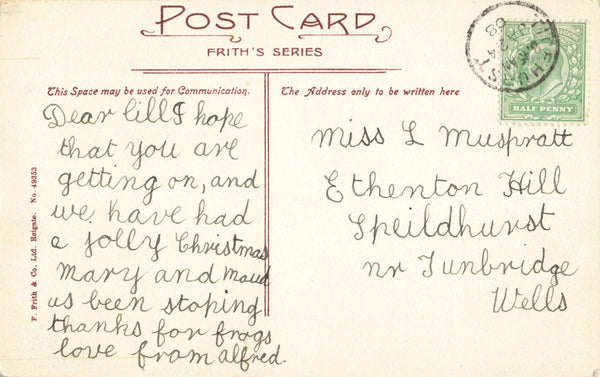 POST CARD
FRITH'S SERIES
This Space may be used for Communication.
The Address only to be written here
Dear lill I hope
that you are
getting on, and
we have had
a jolly Christmas
Mary and maud
as been stoping
thanks for frogs
love from alfred.
Miss L Muspratt
Ethenton Hill
Speildhurst
nr Tunbridge
Wells
HALF PENNY
F. Frith & Co. Ltd. Reigate. No. 49353